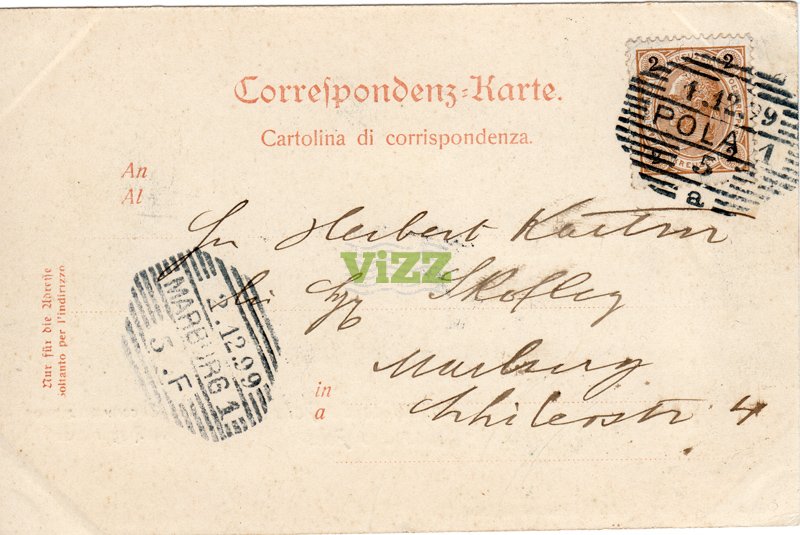 Correspondenz-Karte.
Cartolina di corrispondenza.
An
Al
Herbert
bei
Marburg
in
a
Schillerstr 4
Nur für die Adresse
soltanto per l'indirizzo
2 2
1.12.99
POLA 1
5
a
2.12.99
MARBURG 1
5.F
ViZZ